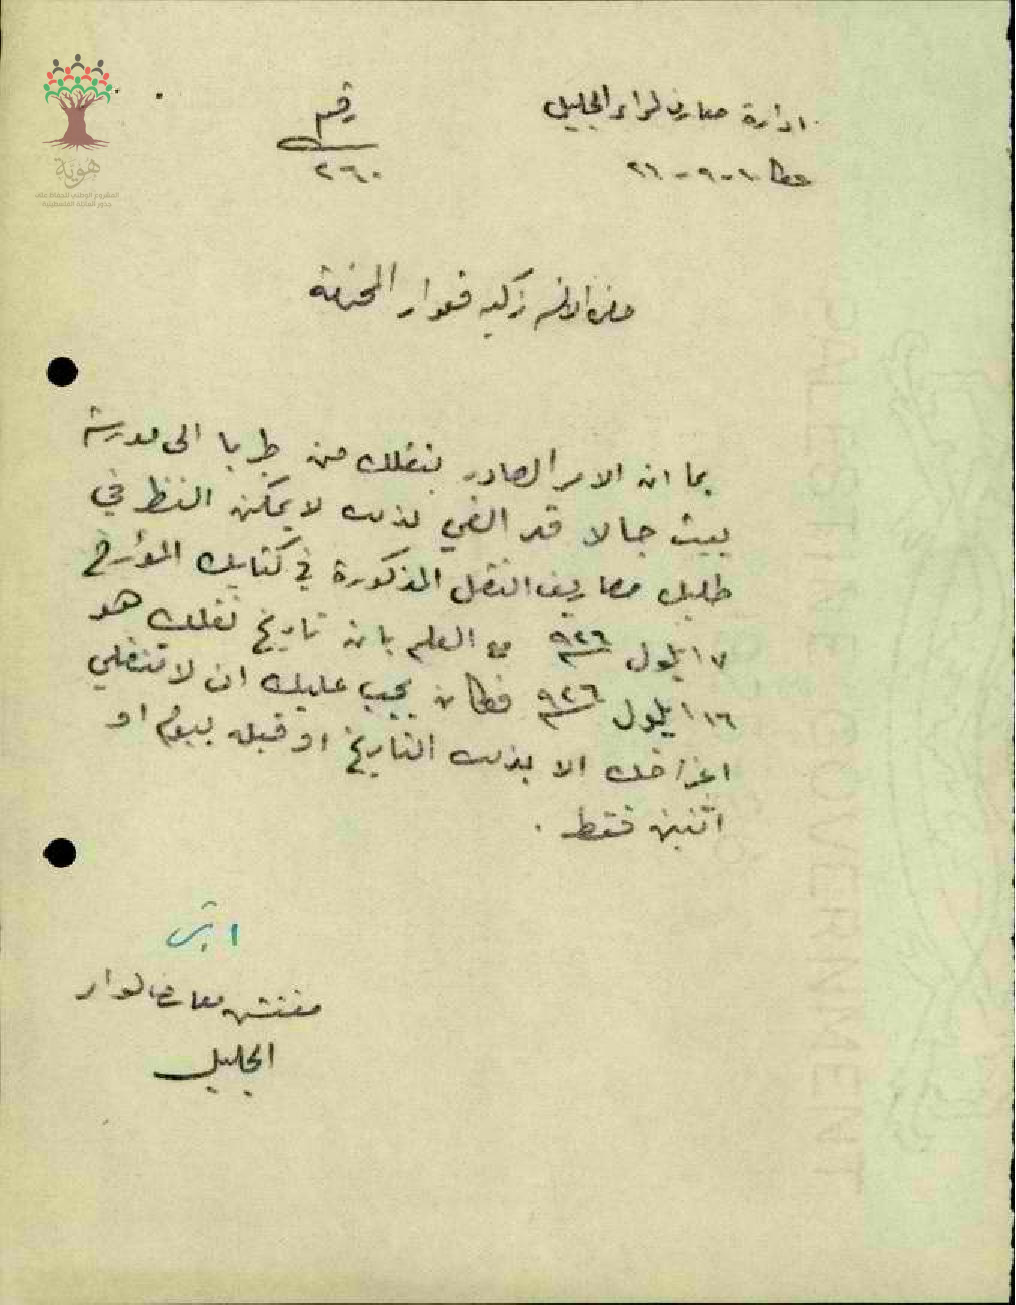 هوية
المشروع الوطني للحفاظ على
جذور العائلة الفلسطينية
ادارة معارف لواء الجليل
رقم
٢٦٠
عكا
حضرة الانسه زكيه قعوار المحترمة
بما ان الامر الصادر بنقلك من طبريا الى مدرسة
بيت جالا قد الغي لذلك لا يمكن النظر في
طلبك مصاريف النقل المذكورة في كتابك المؤرخ
٧ ايلول ٩٢٦ مع العلم بان تاريخ نقلك هو
١٦ ايلول ٩٢٦ فكان يجب عليك ان لا تنقلي
اغراضك الا بذلك التاريخ او قبله بيوم او
اثنين فقط .
مفتش معارف لواء
الجليل
PALESTINE GOVERNMENT